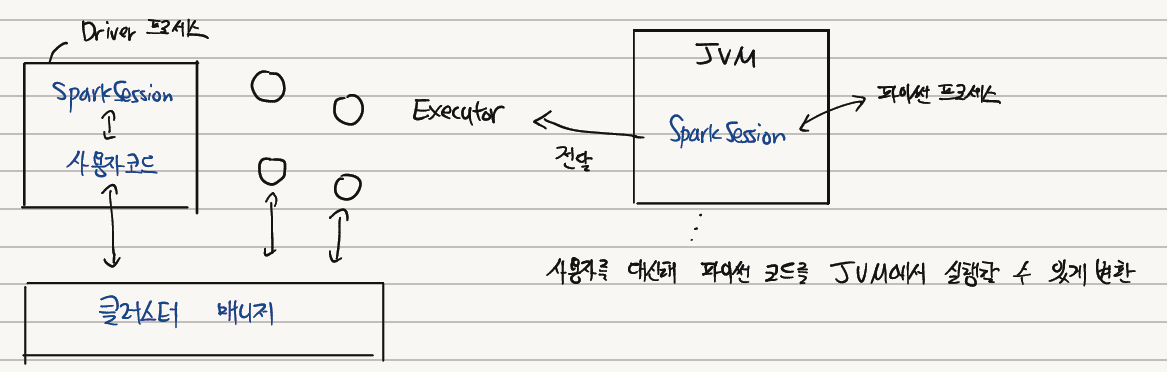 Driver 프로세스
SparkSession
사용자코드
클러스터 매니저
Executor
전달
JVM
SparkSession
파이썬 프로세스
사용자를 대신해 파이썬 코드를 JVM에서 실행할 수 있게 변환